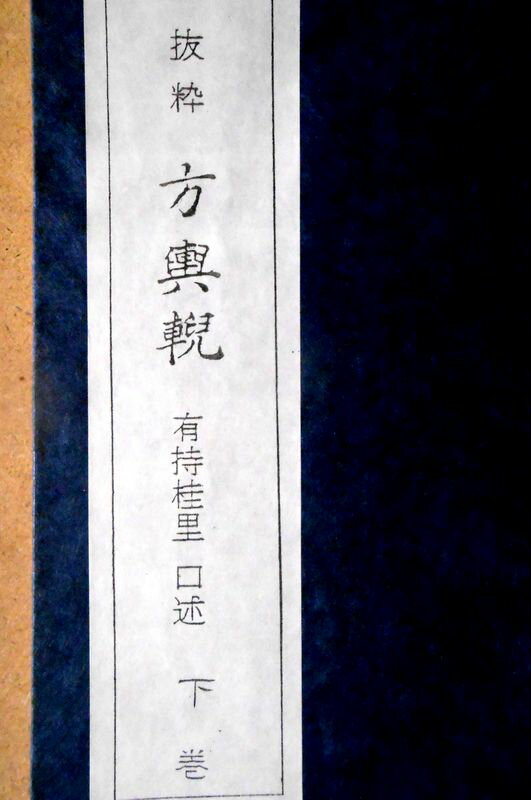 抜粋 方輿輗 有持桂里 口述 下巻